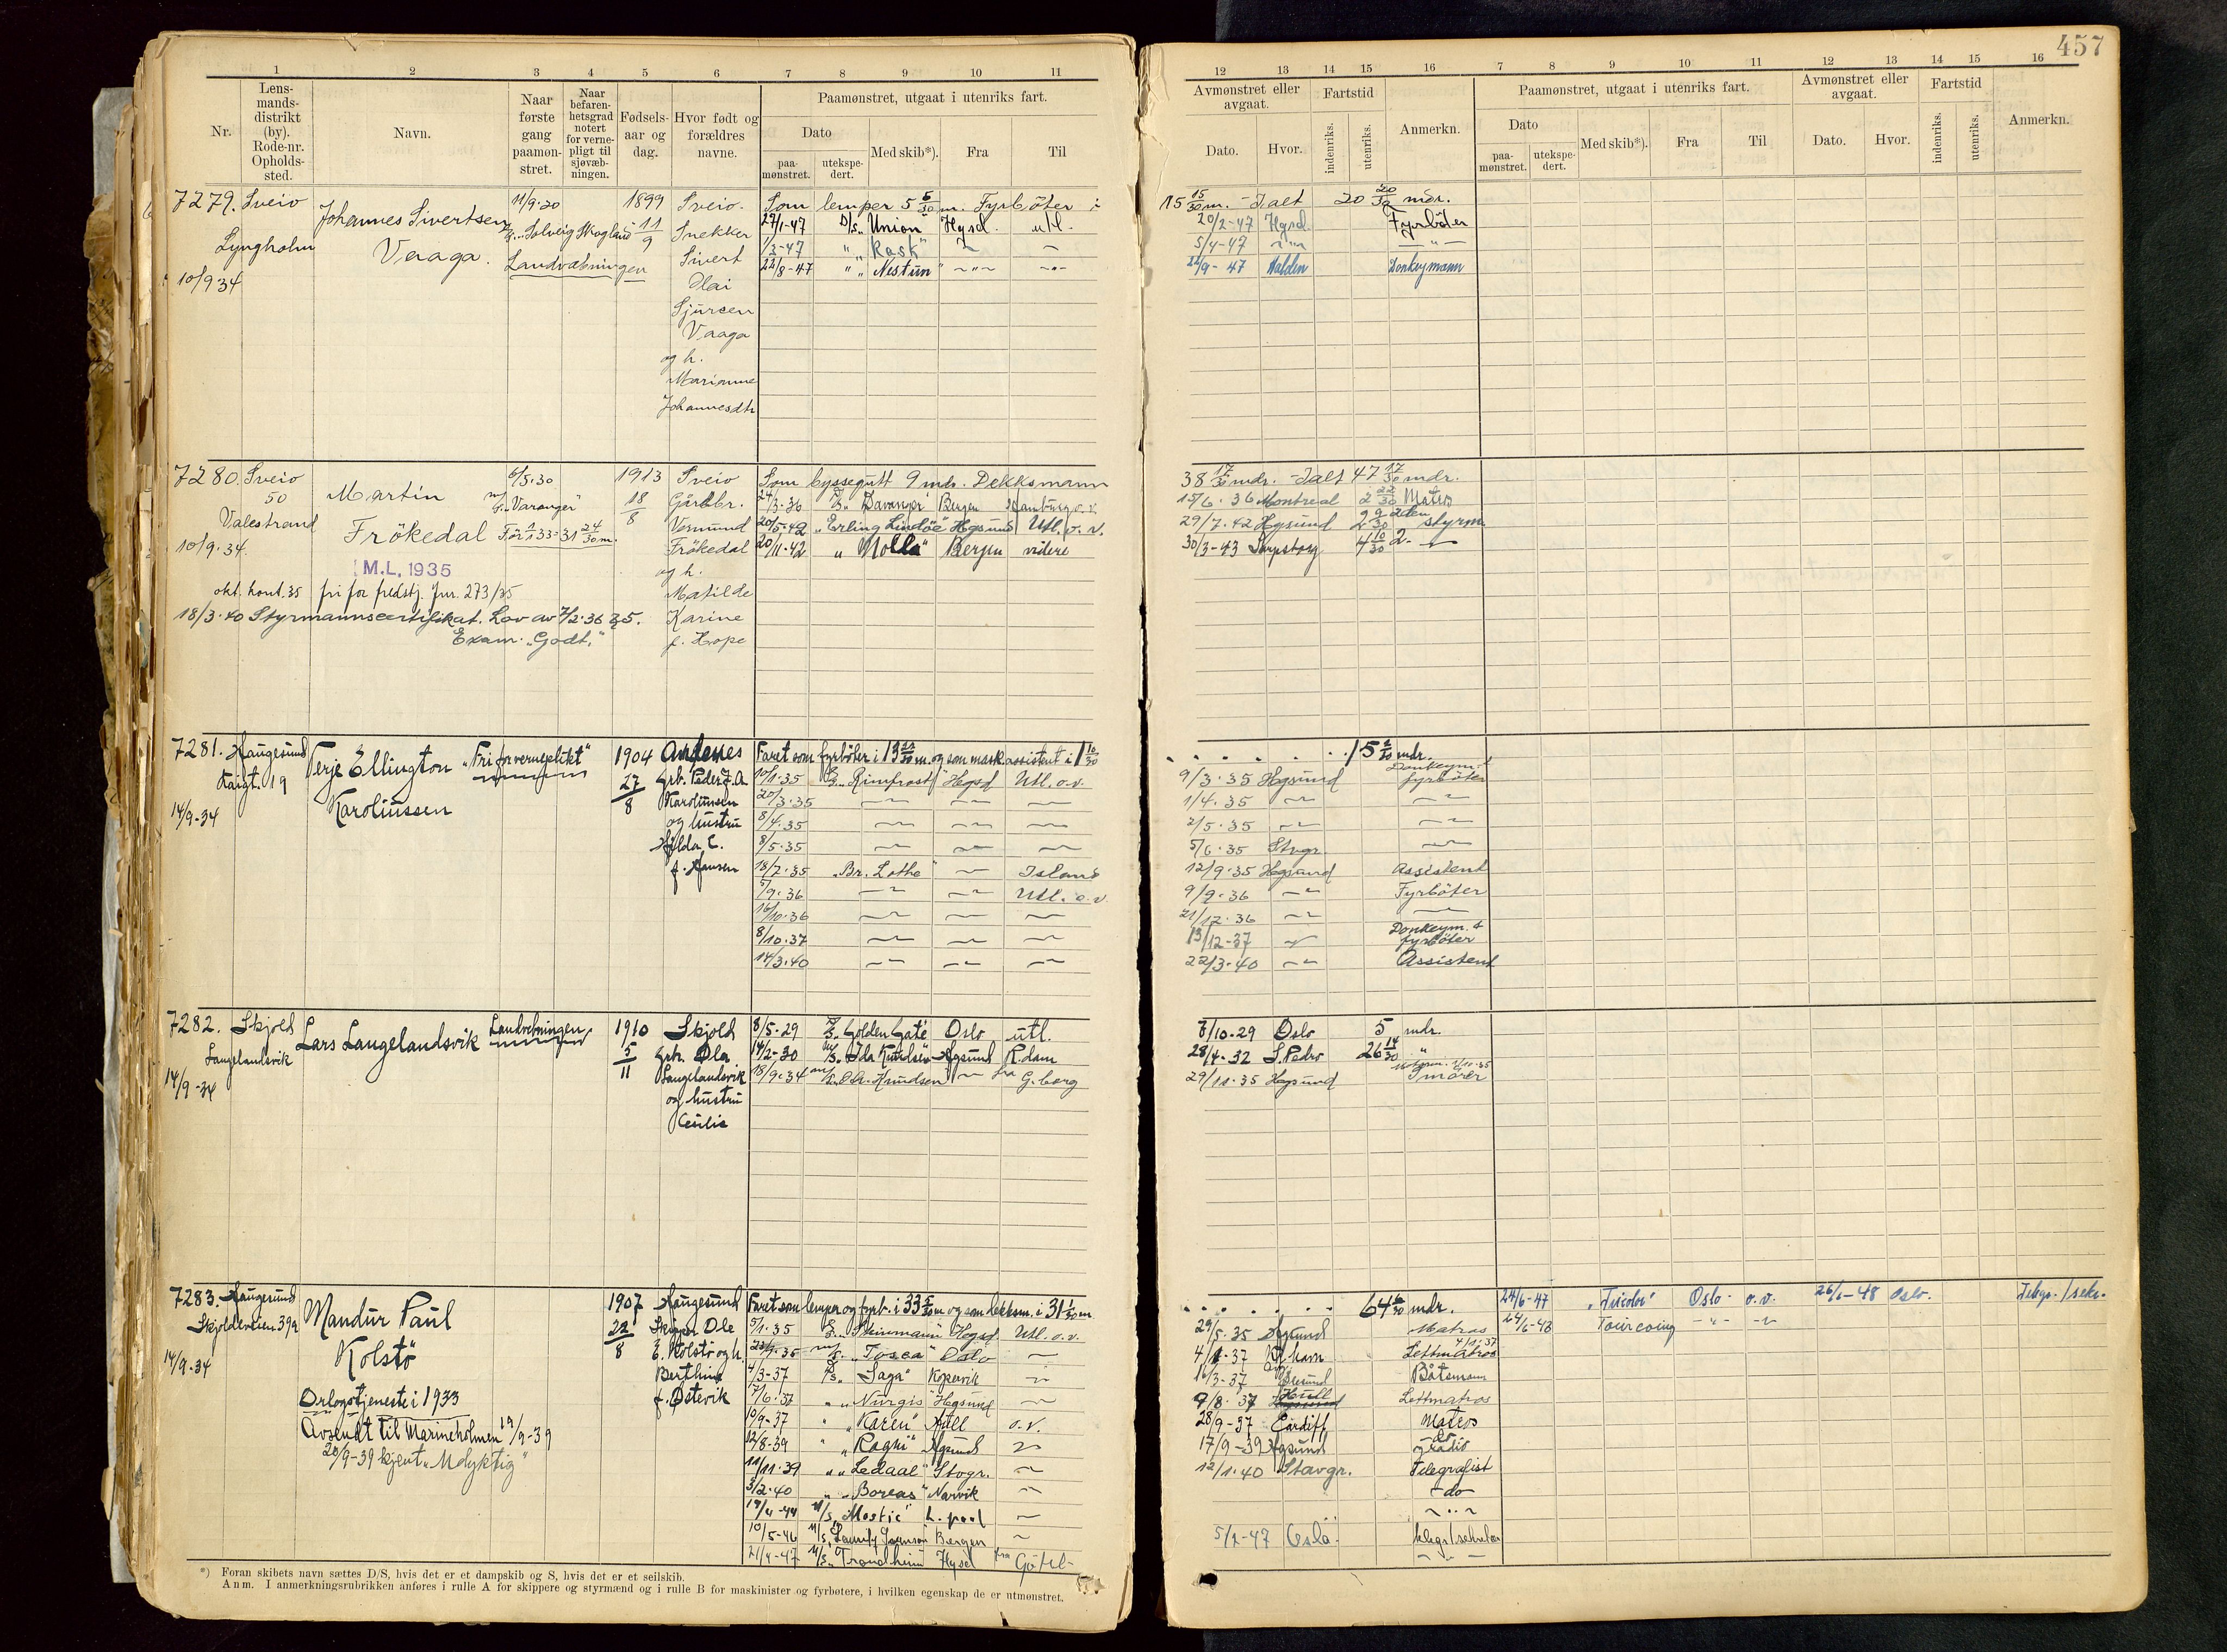 457
1 2 3 4 5 6 7 8 9 10 11
Nr.
Lens-
mands-
distrikt
(by).
Rode-nr.
Opholds-
sted.
Navn.
Naar
første
gang
paamøn-
stret.
Naar
befaren-
hetsgrad
notert
for verne-
pligt til
sjøvæb-
ningen.
Fødsels-
aar og
dag.
Hvor født og
forældres
navne.
Paamønstret, utgaat i utenriks fart.
Dato
paa-
mønstret.
utekspe-
dert.
Med skib*).
Fra
Til
12 13 14 15 16 7 8 9 10 11 12 13 14 15 16
Avmønstret eller
avgaat.
Dato.
Hvor.
Fartstid
indenriks.
utenriks.
Anmerkn.
Paamønstret, utgaat i utenriks fart.
Dato
paa-
mønstret.
utekspe-
dert.
Med skib*).
Fra
Til
Avmønstret eller
avgaat.
Dato.
Hvor.
Fartstid
indenriks.
utenriks.
Anmerkn.
7279. Sveio
Lyngholm
10/9.34
Johannes Sivertsen
Vaaga.
11/9.20
"Solveig Skogland"
Landvæbningen
1899
11/9
Sveio.
Snekker
Sivert
Olai
Sjursen
Vaaga
og h.
Marianne
Johannesdtr
Som lemper 5 6/30 m. Fyrbøter i 15 15/30 m. - Ialt 20 mdr.
27/1-47 D/S "Union" Hgsd. utl. 20/2-47 Hgsd. Fyrbøter
1/3-47 " "Rask" 5/4-47
22/8-47 " "Nestun" 22/9-47 Halden Donkeymann
7280. Sveio
50
Valestrand
10/9.34.
Martin
Frökedal
6/5.30
"Varanger"
M.L. 1935
okt. kont. 35 fri for fredstj. Jnr. 273/35
18/3.40 Styrmannscertifikat. Lov av 7/2.36 § 5.
Exam. "Godt."
1913
18/8
Sveio
Gårdbr.
Vermund
Frökedal
og h.
Matilde
Karine
f. Hope
Som byssegutt 9 mdr. Dekksmann 38 17/30 mdr. - Ialt 47 17/30 mdr.
24/3.36 "Davanger" Bergen Hamburg o.v. 15/6.36 Montreal 2 22/30 Matros
20/5.42 "Erling Lindöe" Hgsund Utl. o.v. 29/7.42 Hgsund 2 9/30 styrm.
20/11.42 "Molla" Bergen videre 30/3-43 Sarpsborg 4 10/30 2.
7281. Haugesund
Kaigt. 19
14/9-34
Terje Ellington
Karoliussen
"Fri for verneplikt"
1904
27/8
Andenes
Grb. Peder J. A.
Karoliussen
og hustru
Hilda C.
f. Hansen
Faret som fyrbøter i 13 m. og som mask.assistent i 1 10/30 15 mdr.
10/1.35 "Rimfrost" Hgsd Utl. o.v. 9/3.35 Hgsund Donkeym. & fyrbøter
20/3.35 1/4.35
8/4.35 2/5.35
8/5.35 5/6.35 Stvgr.
18/7.35 "Br. Lothe" Island 12/9.35 Hgsund Assistent
5/9.36 Utl. o.v. 9/9.36 Fyrbøter
16/10.36 21/12.36
8/10.37 13/12-37 Donkeym. & fyrbøter
14/3.40 22/3.40 Assistent
7282. Skjold
Langelandsvik
14/9-34
Lars Langelandsvik
Landvebningen
1910
5/11
Skjold
Grb. Ola
Langelandsvik
og hustru
Cecilie
8/5-29 "Golden Gate" Oslo utl. 8/10-29 Oslo 5 mdr.
14/2-30 "Ida Knudsen" Hgsund R.dam 28/4-32 S. Pedro 26 14/30 "
18/9.34 "O.A. Knudsen" fra G.borg 29/11.35 Hgsund Smører
7283. Haugesund
Skjoldeveien 39a
14/9-34
Mandur Paul
Kolstø
Orlogstjeneste i 1933
Avsendt til Marineholmen 19/9-39
20/9-39 kjent "Udyktig"
1907
22/8
Haugesund
Skipper Ole
E. Kolstø og h.
Berthine
f. Østevik
Faret som lemper og fyrb. i 33 m og som dekksm. i 31 m 64 6/30 mdr.
5/1.35 "Steinmann" Hgsd. Utl. o.v. 29/5.35 Hgsund Matros
23/9.35 "Tosca" Oslo 4/1-37 Kbhavn Lettmatros
4/3-37 "Saga" Kopervik 16/3-37 Båtsmann
7/6.37 "Nurgis" Hgsund 9/8.37 Hull Lettmatros
10/9-37 "Karen" Hull o.v. 28/9-37 Cardiff Matros
12/8-39 "Ragni" Hgsund 17/9-39 Hgsund do
11/11.39 "Ledaal" Stvgr. 12/1.40 Stavgr. Telegrafist
3/2.40 "Boreas" Narvik do
19/4-44 M/S "Mostic" L.pool
10/5-46 M/S Bergen 5/2-47 Oslo telegr./sekretær
21/4-47 M/S "Trondheim" Hgsd fra Götel-
24/6-47 "Tricolor" Oslo o.v. 26/1-48 Oslo. Telegr./sekr.
24/6-48 Tourcoing
*) Foran skibets navn sættes D/S, hvis det er et dampskib og S, hvis det er et seilskib.
Anm. I anmerkningsrubrikken anføres i rulle A for skippere og styrmænd og i rulle B for maskinister og fyrbøtere, i hvilken egenskap de er utmønstret.